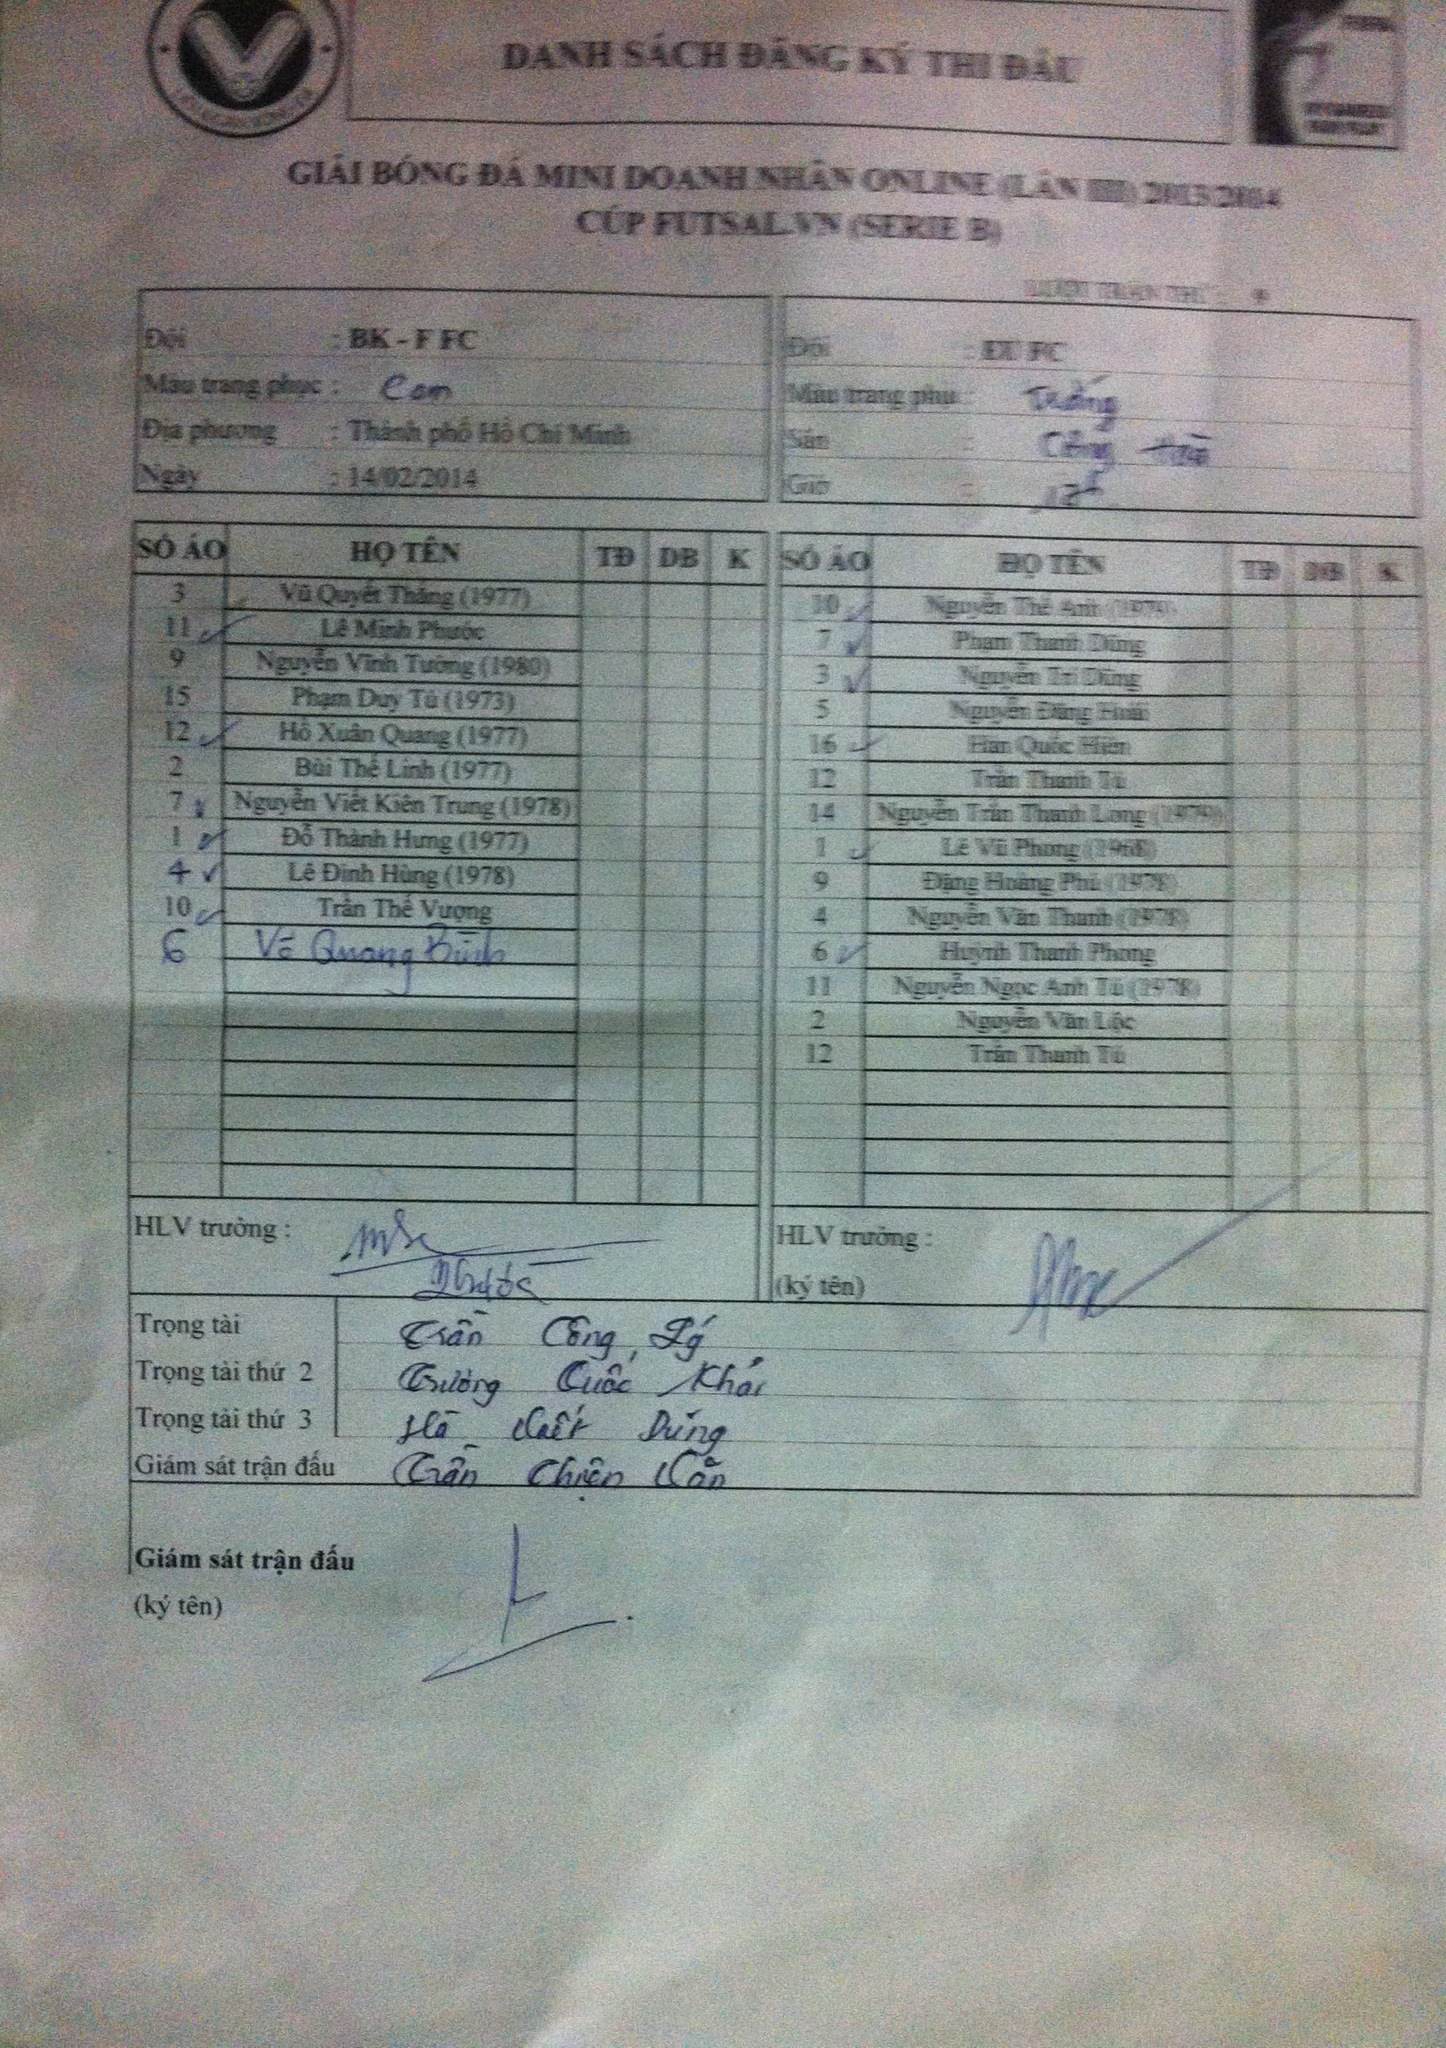 DANH SÁCH ĐĂNG KÝ THI ĐẤU
GIẢI BÓNG ĐÁ MINI DOANH NHÂN ONLINE (LẦN III) 2013/2014
CÚP FUTSAL.VN (SERIE B)
LƯỢT TRẬN THỨ :
Đội : BK - F FC
Màu trang phục : Cam
Địa phương : Thành phố Hồ Chí Minh
Ngày : 14/02/2014
Đội : FC
Màu trang phụ : Trắng
Sân : Cộng Hoà
Giờ :
SỐ ÁO HỌ TÊN TĐ DB K
3 Vũ Quyết Thắng (1977)
11 Lê Minh Phước
9 Nguyễn Vĩnh Tường (1980)
15 Phạm Duy Tú (1973)
12 Hồ Xuân Quang (1977)
2 Bùi Thế Linh (1977)
7 Nguyễn Viết Kiên Trung (1978)
1 Đỗ Thành Hưng (1977)
4 Lê Đình Hùng (1978)
10 Trần Thế Vượng
6 Võ Quang Bình
SỐ ÁO HỌ TÊN TĐ DB K
10 Nguyễn Thế Anh (1979)
7 Phạm Thanh Dũng
3 Nguyễn Trí Dũng
5 Nguyễn Đăng Hoài
16 Hàn Quốc Hiền
12 Trần Thanh Tú
14 Nguyễn Trần Thanh Long (1979)
1 Lê Vũ Phong (1968)
9 Đặng Hoàng Phú (1978)
4 Nguyễn Văn Thanh (1978)
6 Huỳnh Thanh Phong
11 Nguyễn Ngọc Anh Tú (1978)
2 Nguyễn Văn Lộc
12 Trần Thanh Tú
HLV trưởng :
HLV trưởng :
(ký tên)
Trọng tài Trần Công Lý
Trọng tài thứ 2 Trương Quốc Khải
Trọng tài thứ 3 Hà Việt Dũng
Giám sát trận đấu Trần Thiện Văn
Giám sát trận đấu
(ký tên)